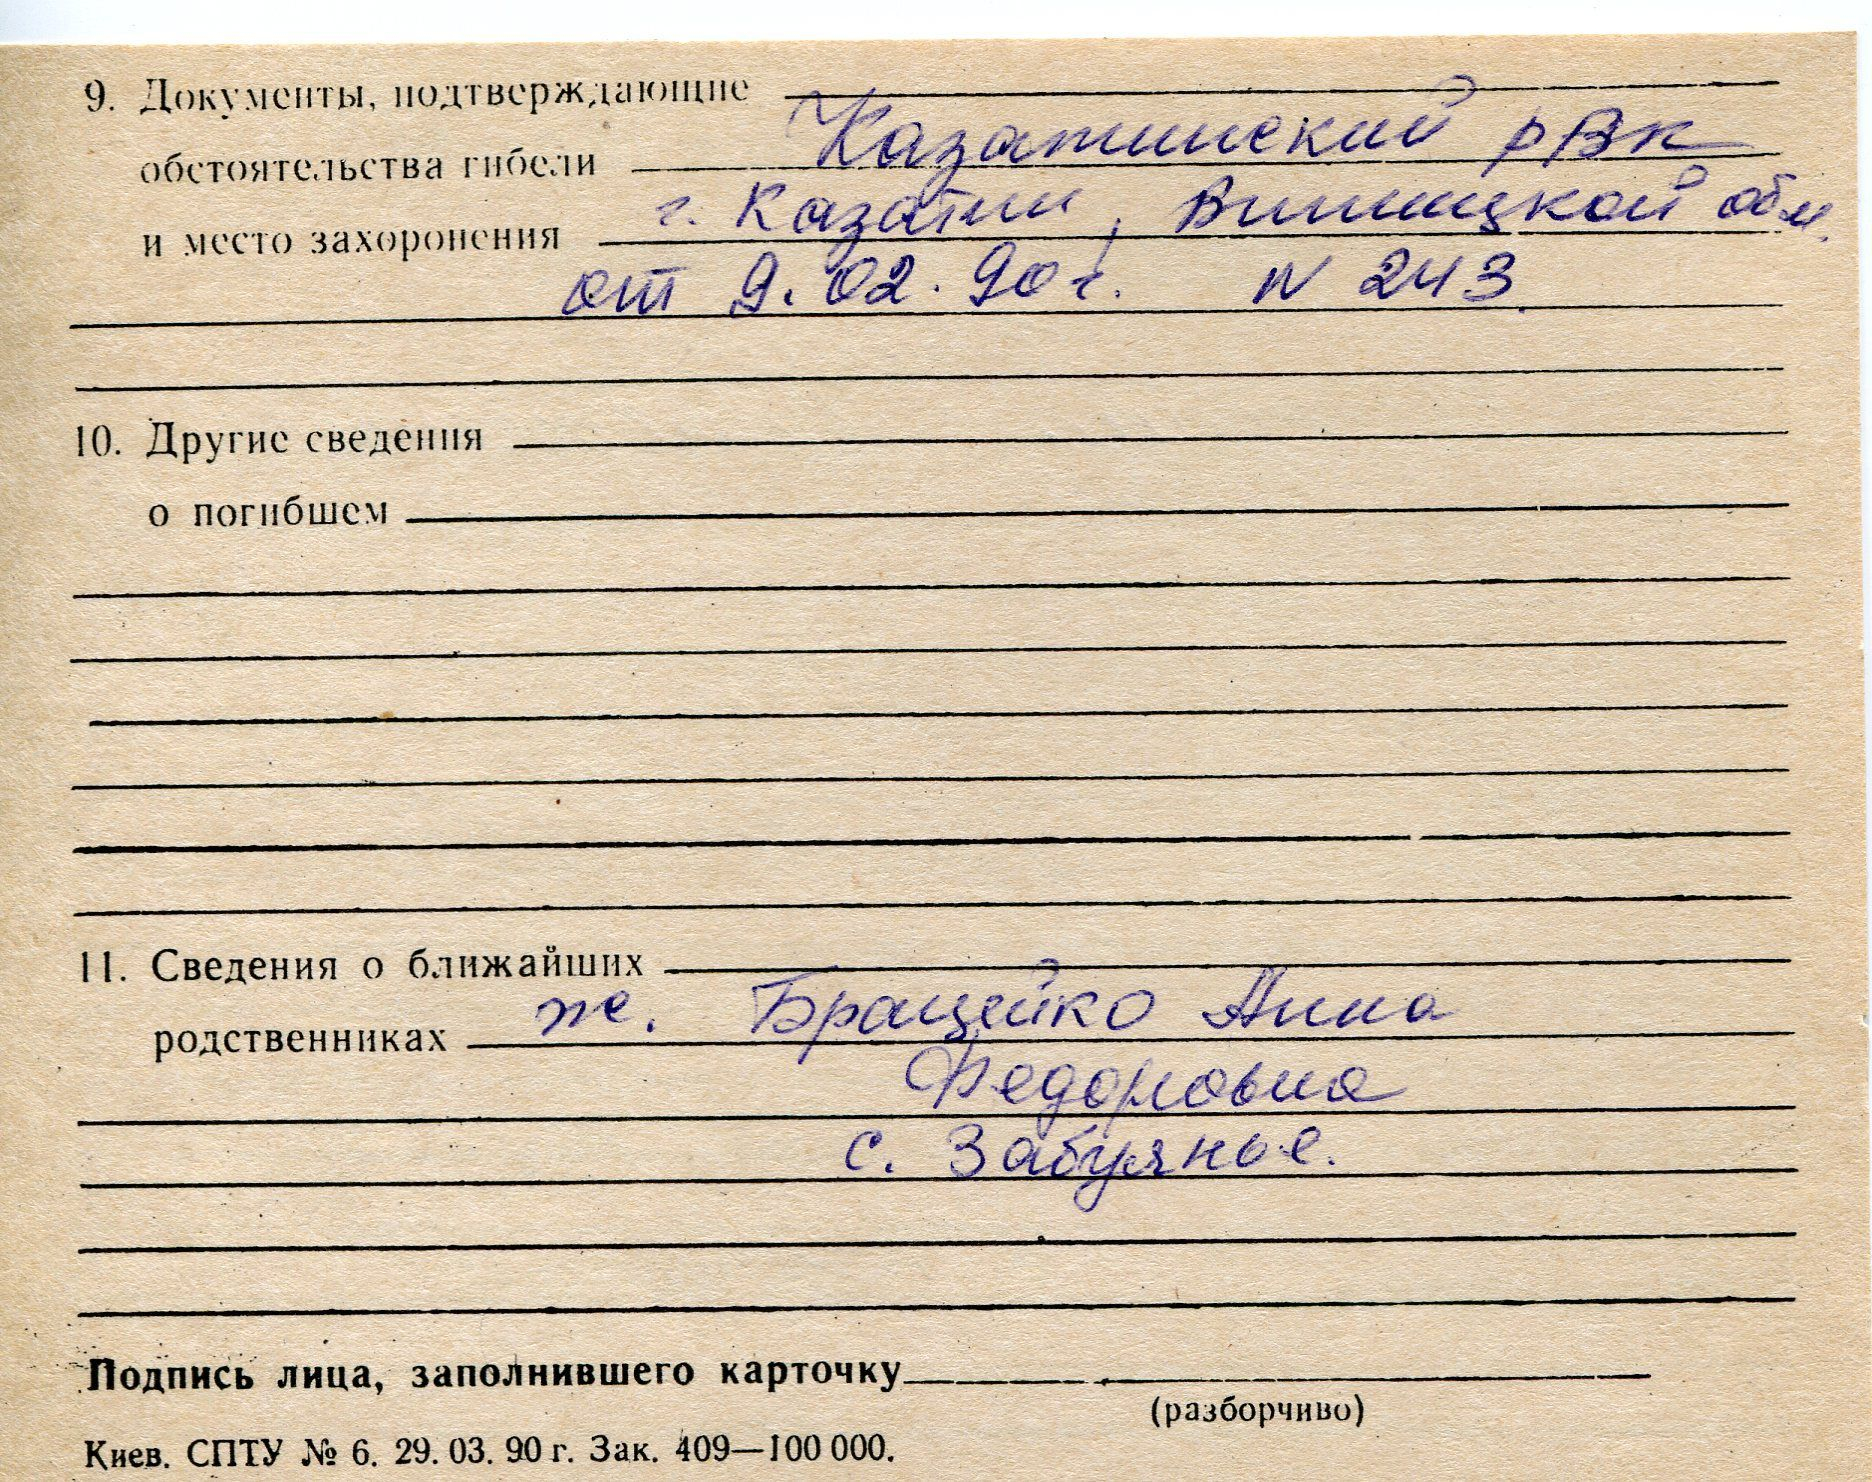 9. Документы, подтверждающие
обстоятельства гибели Казатинский РВК
и место захоронения г. Казатин, Винницкой обл.
от 9.02.90 г. N 243.
10. Другие сведения
о погибшем
11. Сведения о ближайших
родственниках ж. Бращейко Анна
Федоровна
с. Забузянье.
Подпись лица, заполнившего карточку
(разборчиво)
Киев. СПТУ № 6. 29. 03. 90 г. Зак. 409—100 000.